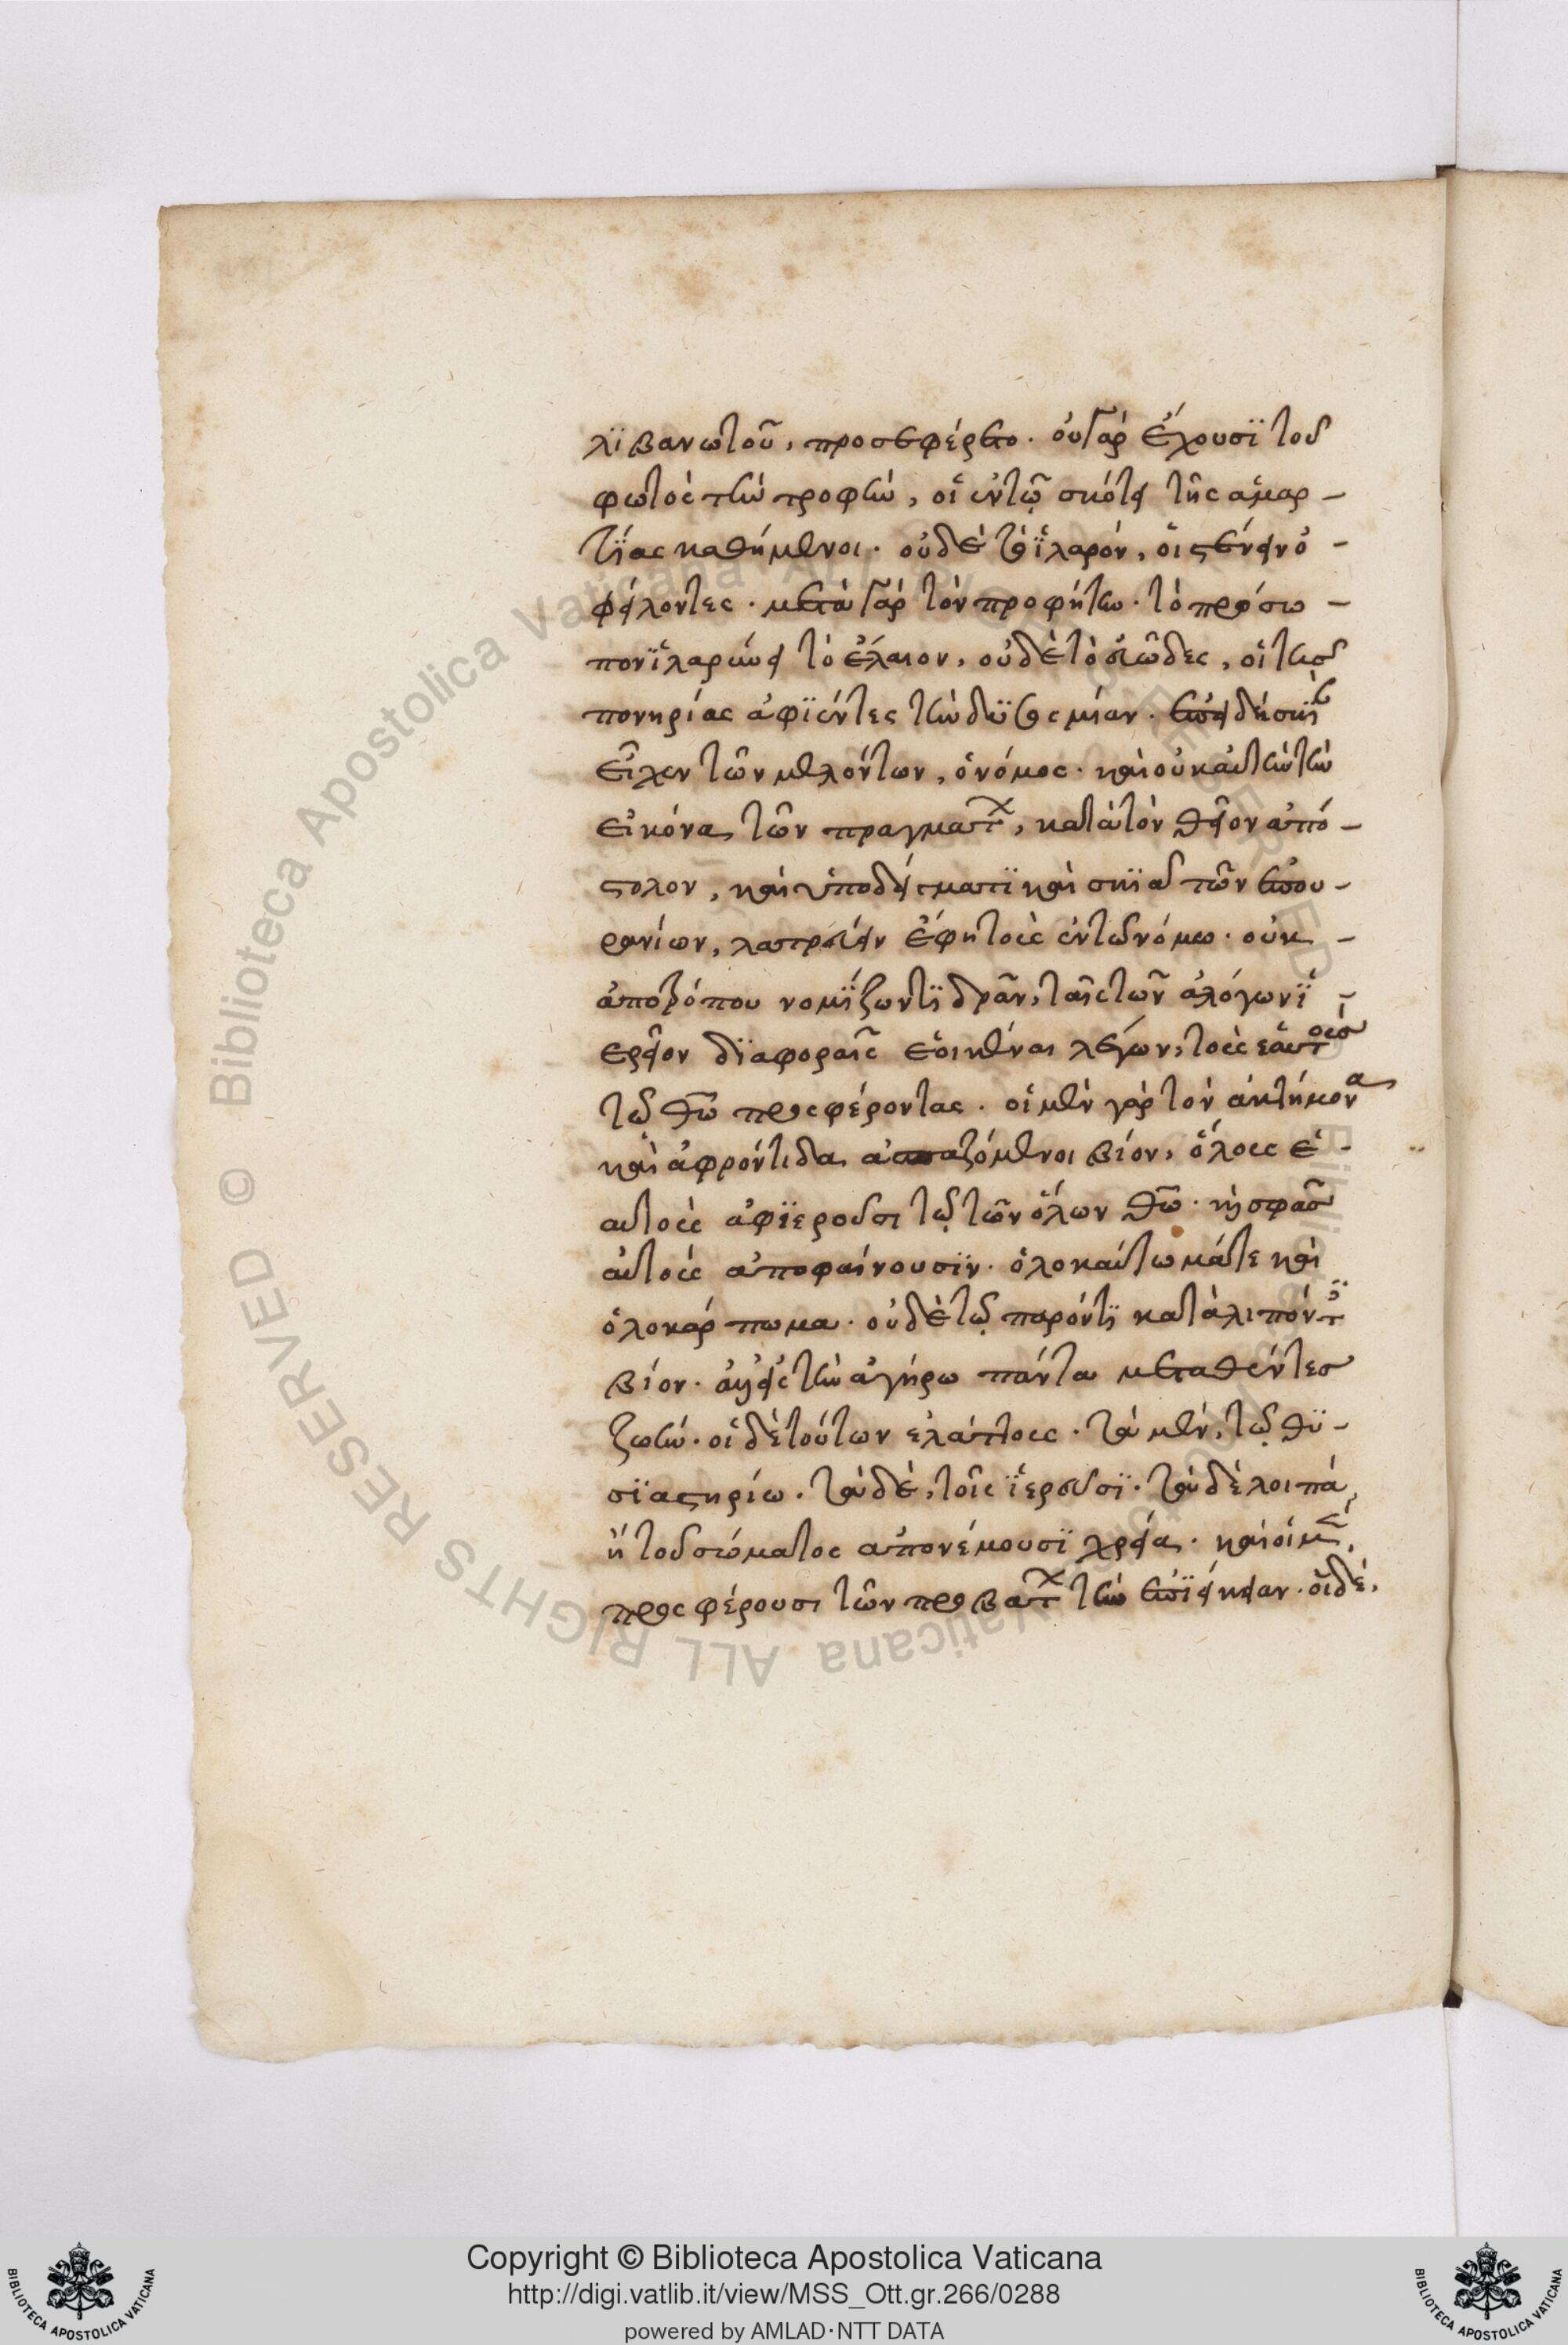 λϊβανωτοῦ, προσεφέρετο. οὐ γὰρ ἔχουσϊ τοῦ
φωτὸς τὴν τροφὴν, οἱ ἐν τῷ σκότει τῆς ἁμαρ-
τϊας καθήμενοι. οὐδὲ τὸ ϊλαρόν, οἱ στένειν ὀ-
φείλοντες. μετὰ γὰρ τὸν προφήτην. τὸ πρόσω-
πον ϊλαρύνει τὸ ἔλαιον, οὐδὲ τὸ εὐῶδες, οἱ τῆς
πονηρίας ἀφϊέντες τὴν δυσοσμίαν. ἐπειδὴ σκϊὰν
εἶχεν τῶν μελλόντων, ὁ νόμος. καὶ οὐκ αὐτὴν τὴν
εἰκόνα τῶν πραγμάτων, κατὰ τὸν θεῖον ἀπό-
στολον, καὶ ὑποδείγματϊ καὶ σκϊᾷ τῶν ἐπου-
ρανίων, λατρεύειν ἔφη τοὺς ἐν τῷ νόμω. οὐκ
ἀποτρόπου νομϊζωντϊ δρᾶν, ταῖς τῶν ἀλόγων ϊ-
ερείον δϊαφοραῖς ἐοικέναι λέγων, τοὺς ἑαυτοὺσ
τῷ θῶ προσφέροντας. οἱ μὲν γὰρ τὸν ἀκτήμονα
καὶ ἀφρόντιδα ἀσπαζόμενοι βίον, ὅλους ἑ-
αυτοὺς ἀφϊεροῦσι τῷ τῶν ὅλων θῶ. καὶ σφᾶσ
αὐτοὺς ἀποφαίνουσϊν. ὁλοκαύτωμά τε καὶ
ὁλοκάρπωμα. οὐδὲν τῷ παρόντϊ καταλιπόντες
βίον. ἀλλ' εἰς τὴν ἀγήρω πάντα μεταθέντεσ
ζωήν. οἱ δὲ τούτων ἐλάττους. τὰ μὲν, τῷ θϋ-
σϊαστηρίω. τὰ δὲ, τοῖς ϊερεῦσϊ. τὰ δὲ λοιπὰ,
τῆ τοῦ σώματος ἀπονέμουσϊ χρεία. καὶ οἱ μὲν,
προσφέρουσι τῶν προβάτων τὴν ἐπϊείκειαν. οἱ δὲ,
Copyright © Biblioteca Apostolica Vaticana
http://digi.vatlib.it/view/MSS_Ott.gr.266/0288
powered by AMLAD·NTT DATA